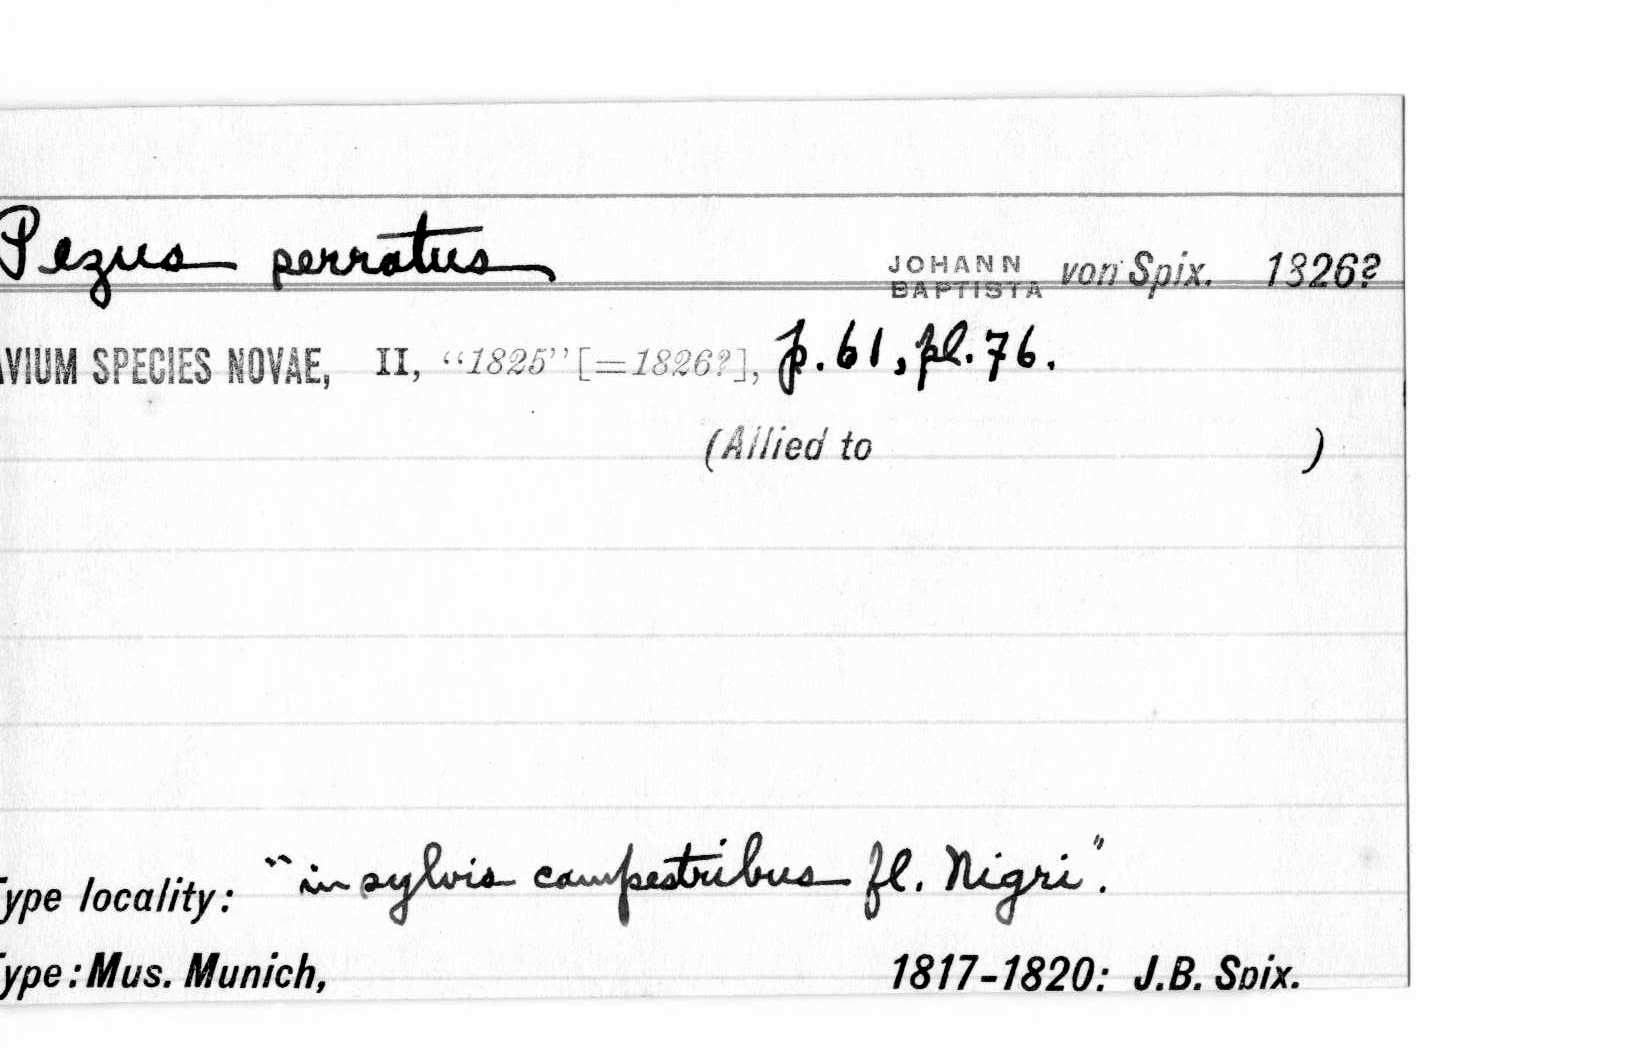 Pezus serratus JOHANN BAPTISTA von Spix. 1826?
AVIUM SPECIES NOVAE, II, “1825” [=1826?], p. 61, pl. 76.
(Allied to )
Type locality: "in sylvis campestribus fl. Nigri".
Type: Mus. Munich, 1817-1820: J.B. Spix.